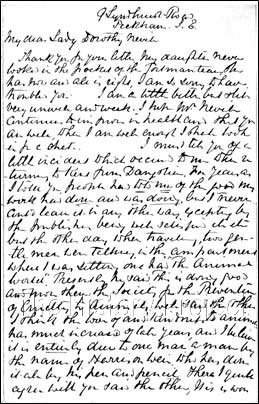 Lyndhurst Rd
Peckham. S. E.
My dear Lady Dorothy Nevill
Thank you for your letter My daughter never
looked in the pocket of the portmanteau, she
has now and all is right. I am so sorry to have
trouble you. I am a little better but still
very unwell and weak. I hope Mr Nevill
continues to improve in health and that you
are well. When I am well enough I shall look
in for a chat. I must tell you of a
little incident which occurred to me when re
turning to Town from Dangstein. For years, as
I told you, people has told me of the good my
works had done and was doing, but I never
could learn it in any other way, excepting by
the public. has been
but the other day when traveling, two gen-
tlemen were talking in the compartment
where I was sitting, one had the Animal
World. Presently he said this is doing good
and now then the Society for the Prevention
of Cruelty to Animals, yes said the other
I think the love of and kindness to animals
has much increased of late years and I believe
it is entirely due to one man a man by
the name of Harrison Weir who has done
it all by his pen and pencil, there I quite
agree with you said the other, His is won